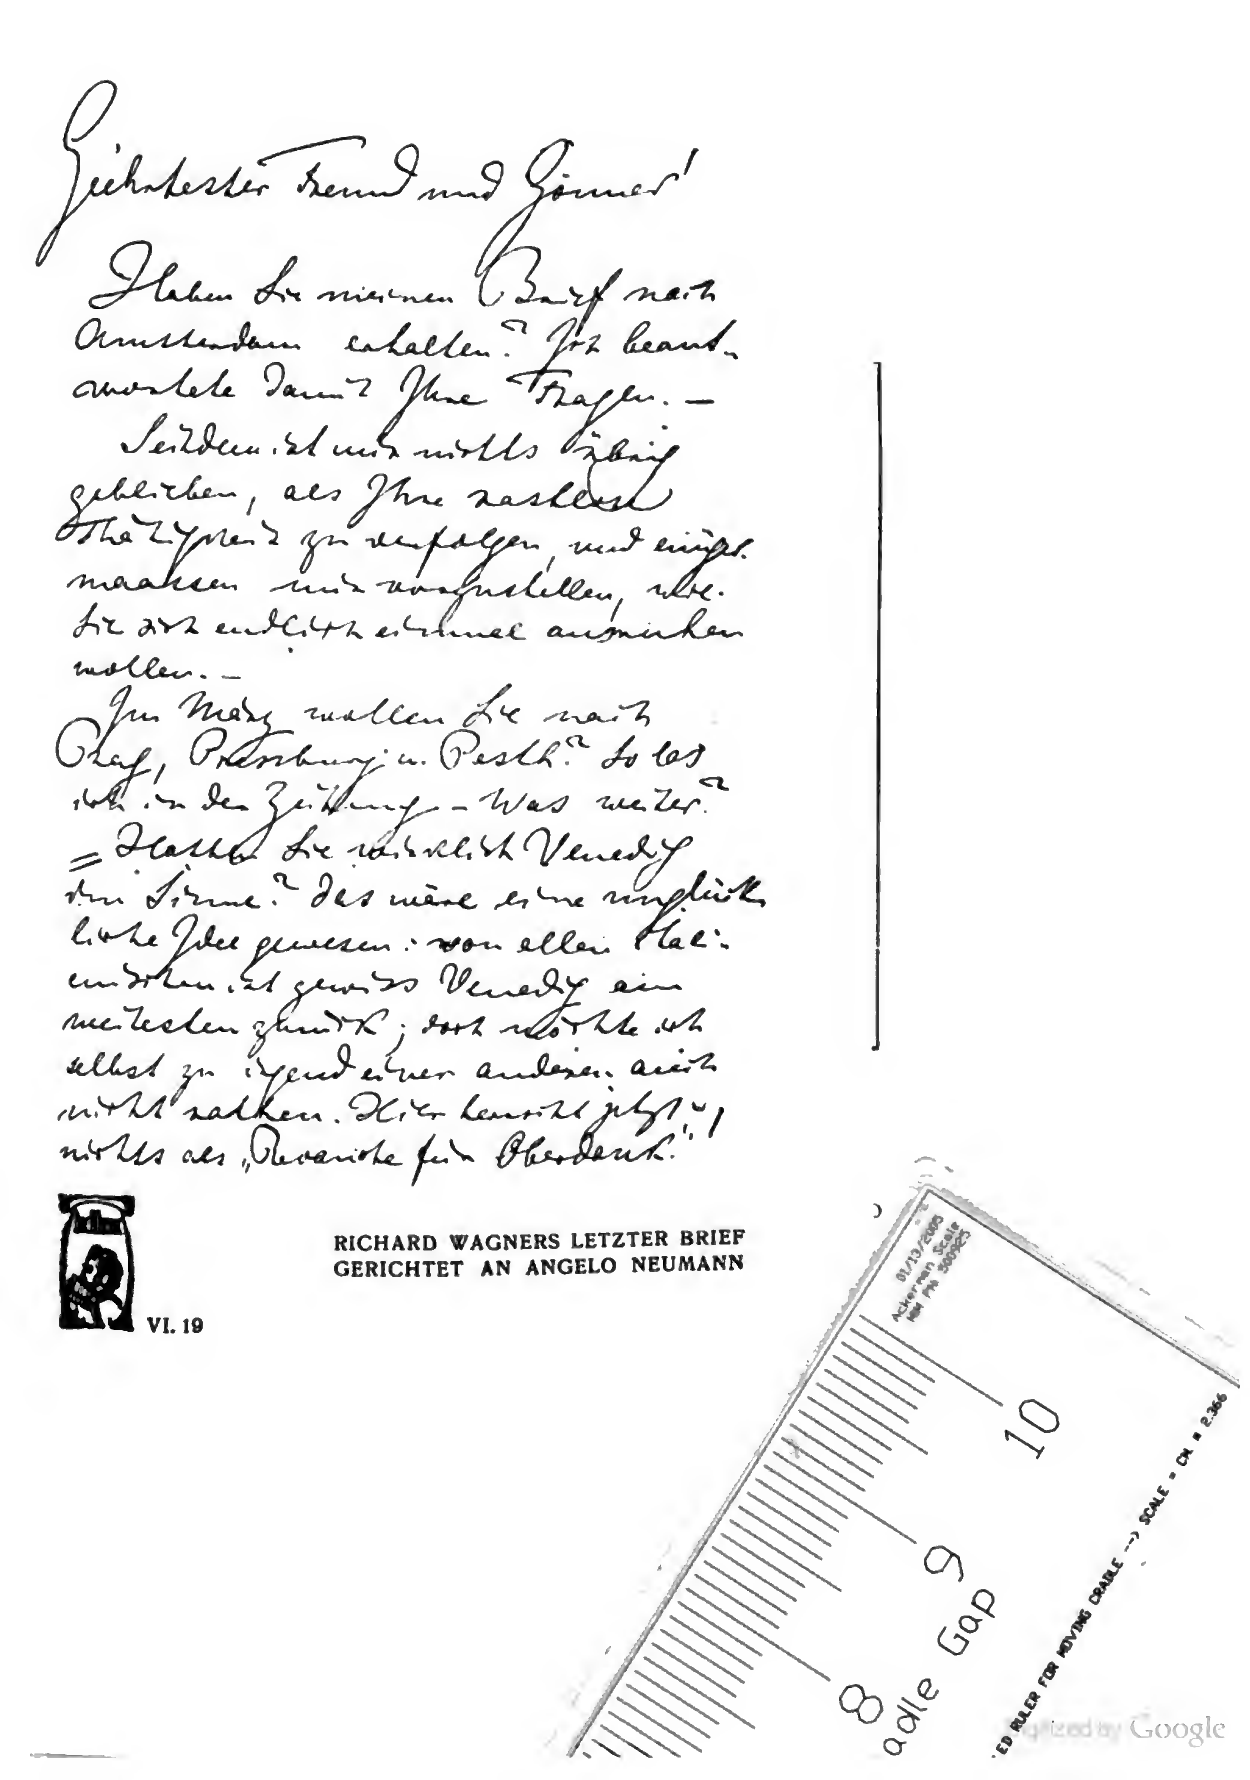 Geehrtester Freund und Gönner!
Haben Sie meinen Brief nach
Amsterdam erhalten? Ich beant-
wortete damit Ihre Fragen. —
Seitdem ist mir nichts übrig
geblieben, als Ihre rastlose
Thätigkeit zu verfolgen, und einiger-
maassen mir vorzustellen, wie
Sie sich endlich einmal ausruhen
wollen. —
Im März wollen Sie nach
Prag, Pressburg u. Pesth? So las
ich in der Zeitung — Was weiter?
= Hatten Sie wirklich Venedig
im Sinne? Das wäre eine unglück-
liche Idee gewesen: von allen Itali-
enischen ist gewiss Venedig am
weitesten zurück; doch möchte ich
selbst zu irgend einer anderen auch
nicht rathen. Hier herrscht jetzt
nichts als „Revanche für Oberdank."
RICHARD WAGNERS LETZTER BRIEF
GERICHTET AN ANGELO NEUMANN
VI. 19
01/13/2005
Ackerman Scale
MM PN 500925
10
9
8
adle Gap
ED RULER FOR MOVING CRADLE --> SCALE = CM. * 2.366
Digitized by Google